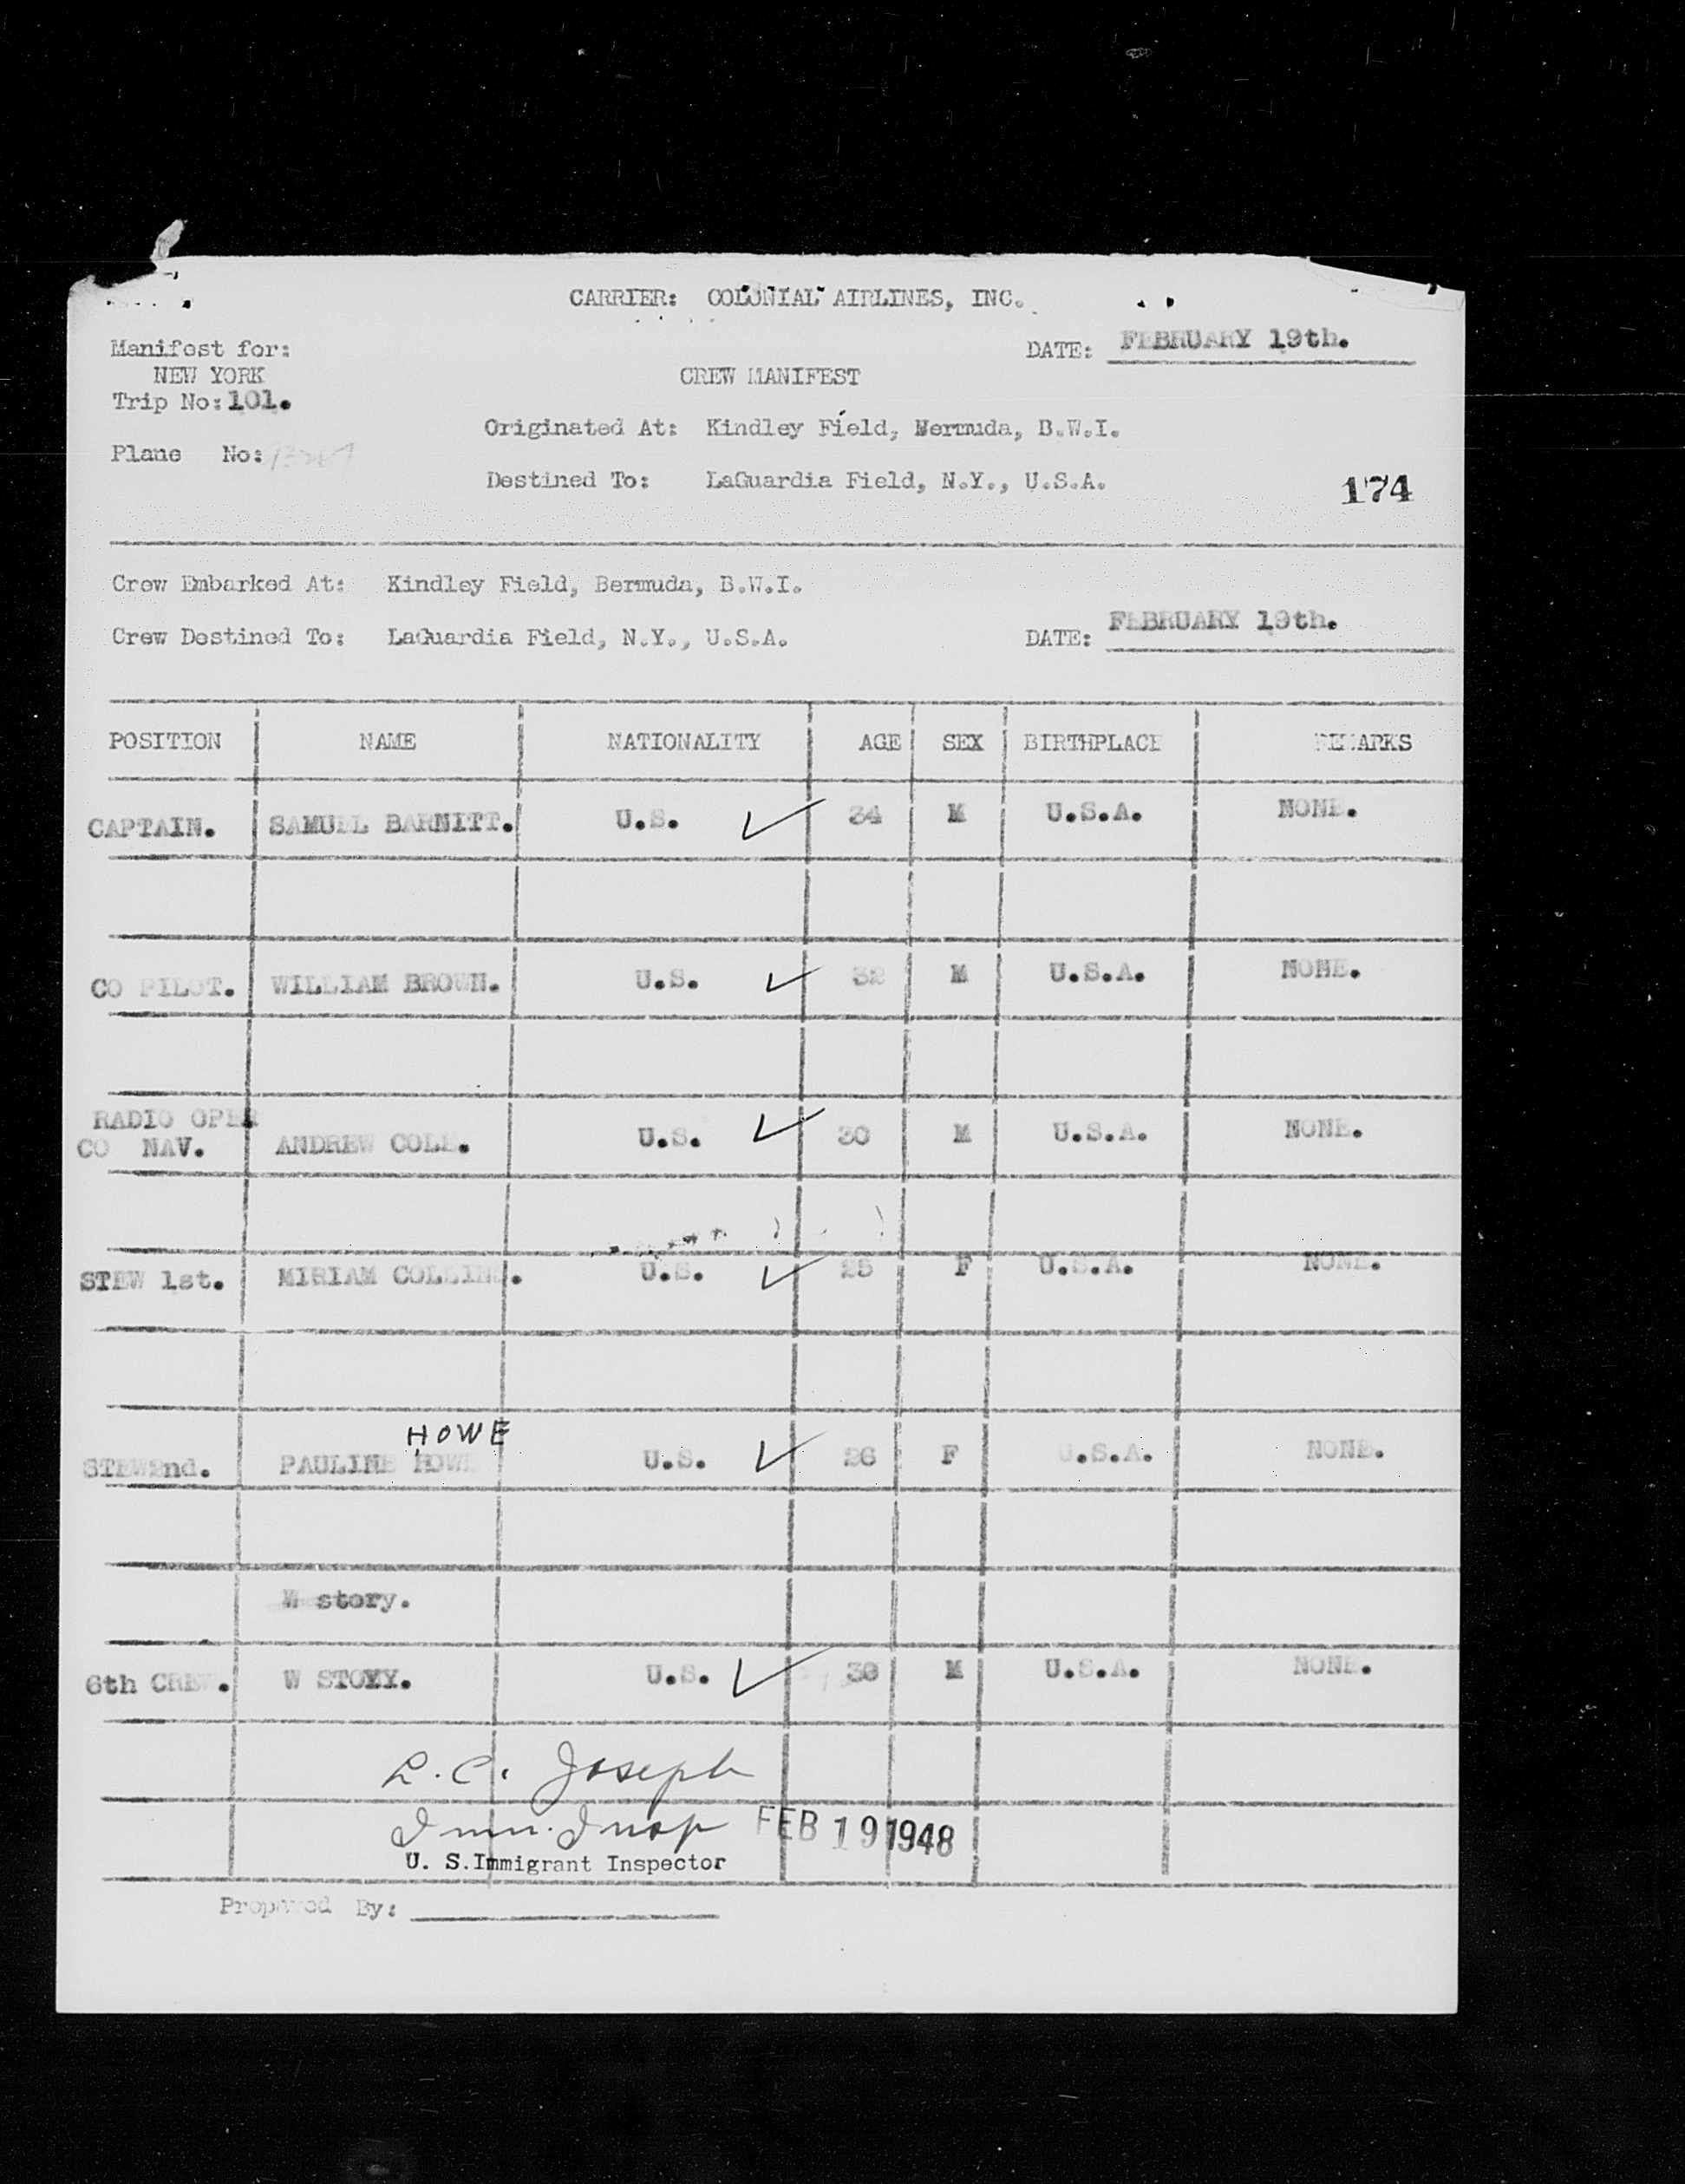 CARRIER: COLONIAL AIRLINES, INC.
Manifest for:
DATE: FEBRUARY 19th.
NEW YORK
CREW MANIFEST
Trip No: 101.
Originated At: Kindley Field, Wermuda, B.W.I.
Plane No:
Destined To: LaGuardia Field, N.Y., U.S.A.
174
Crew Embarked At: Kindley Field, Bermuda, B.W.I.
Crew Destined To: LaGuardia Field, N.Y., U.S.A.
DATE: FEBRUARY 19th.
POSITION NAME NATIONALITY AGE SEX BIRTHPLACE REMARKS
CAPTAIN. SAMUEL BARNITT. U.S. ✓ 34 M U.S.A. NONE.
CO PILOT. WILLIAM BROWN. U.S. ✓ 32 M U.S.A. NONE.
RADIO OPER
CO NAV. ANDREW COLE. U.S. ✓ 30 M U.S.A. NONE.
STEW 1st. MIRIAM COLLINS. U.S. ✓ 25 F U.S.A. NONE.
HOWE
STEW2nd. PAULINE HOWE U.S. ✓ 26 F U.S.A. NONE.
W story.
6th CREW. W STOYY. U.S. ✓ 30 M U.S.A. NONE.
L.C. Joseph
Imm. Insp FEB 19 1948
U. S. Immigrant Inspector
Prepared By: